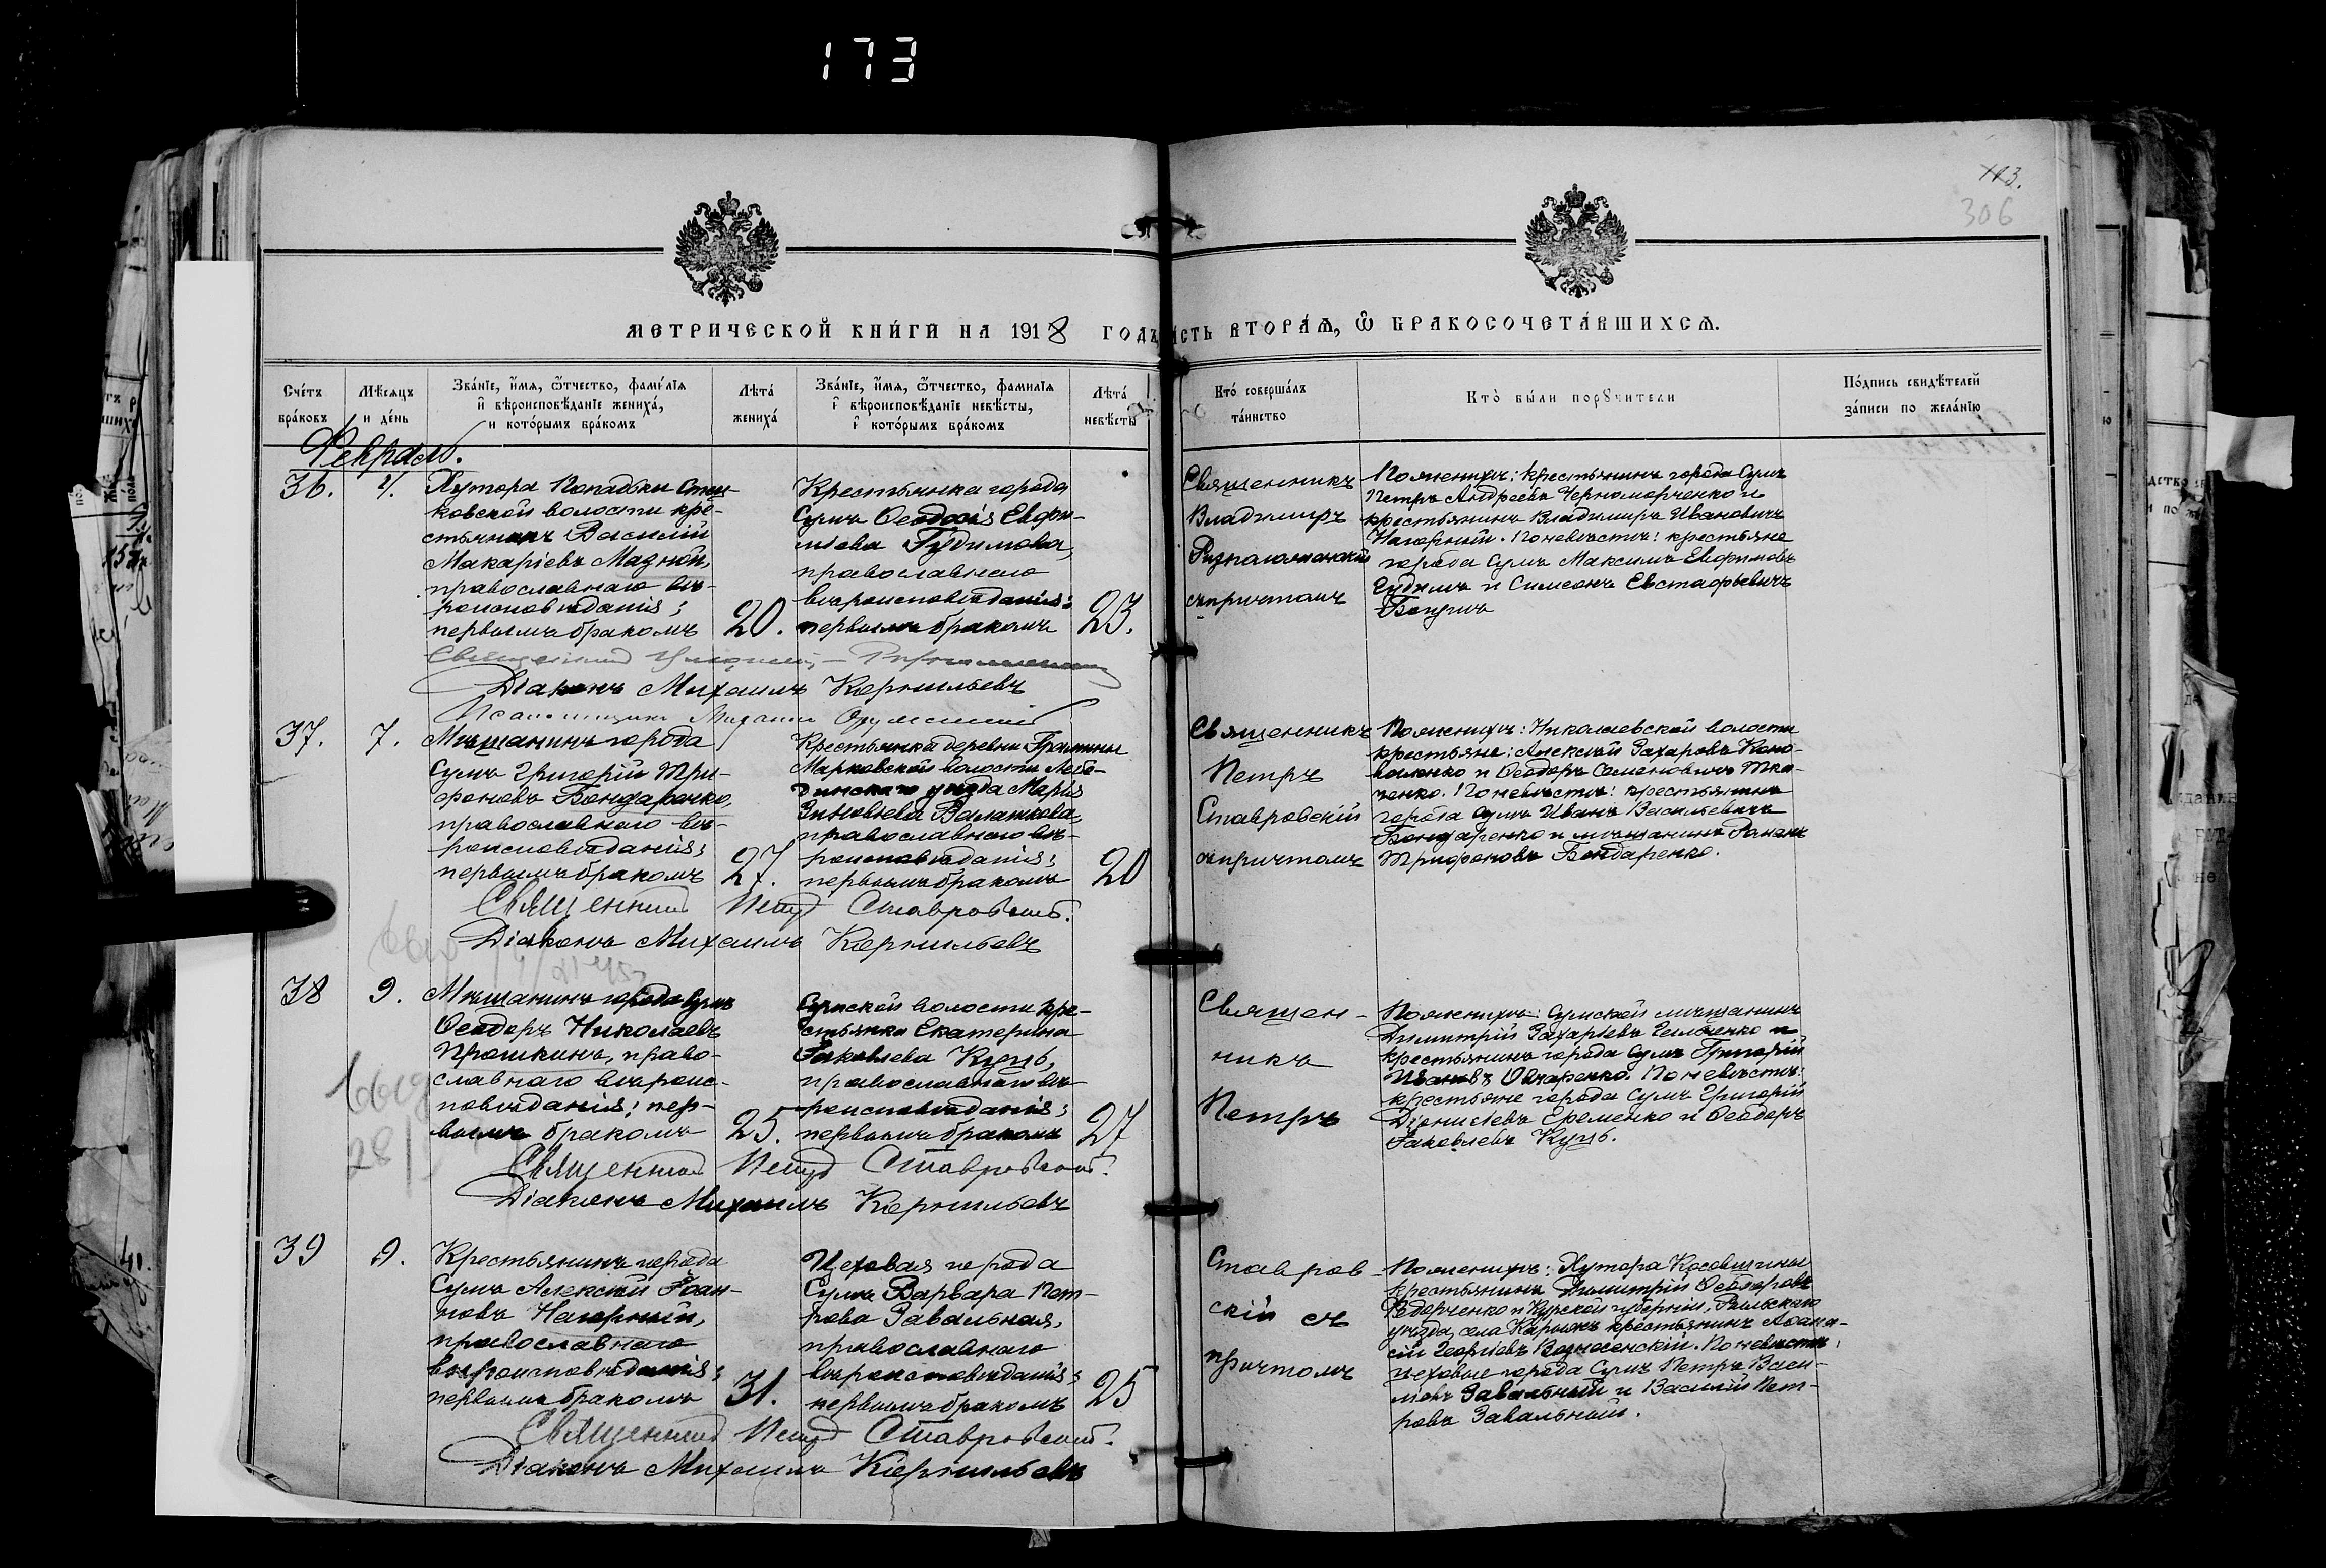 173
113.
306
МЕТРИЧЕСКОЙ КНИ́ГИ НА 1918 ГОДЪ,
ИСТЬ ВТОРА́Ѧ, Ѽ БРАКОСОЧЕТА́ВШИХСѦ.
Сче́тъ бра́ковъ
Мѣ́сѧцъ и де́нь
Зва́нїе, и́мѧ, ѻ҆́тчество, фами́лїѧ и҆ вѣроисповѣ́данїе жениха́, и кото́рымъ бра́комъ
Лѣта́ жениха́
Зва́нїе, и́мѧ, ѻ҆́тчество, фамилїѧ и҆ вѣроисповѣ́данїе невѣ́сты, и҆ кото́рымъ бра́комъ
Лѣта́ невѣ́сты
Кто́ соверша́лъ та́инство
Кто̀ бы́ли порꙋчители
По́дпись свидѣ́телей за́писи по жела́нїю
Февраль.
36.
4.
Хутора Попадьки Стец-
ковской волости кре-
стьянинъ Василій
Макаріевъ Мазной,
православнаго вѣ-
роисповѣданія;
первымъ бракомъ
20.
Крестьянка города
Сумъ Ѳеодосія Евфи-
міева Гудимова,
православнаго
вѣроисповѣданія;
первымъ бракомъ
23.
Священникъ
Владимиръ
Ризположенскій
съ причтомъ
По женихѣ: крестьянинъ города Сумъ
Петръ Андреевъ Черноморченко и
крестьянинъ Владимиръ Ивановичъ
Нагорный. По невѣстѣ: крестьяне
города Сумъ Максимъ Евфимовъ
Гудимъ и Симеонъ Евстафьевичъ
Діаконъ Михаилъ Корнильевъ
Псаломщикъ Михаилъ
37.
7.
Мѣщанинъ города
Сумъ Григорій Три-
фоновъ Бондаренко,
православнаго вѣ-
роисповѣданія;
первымъ бракомъ
27.
Крестьянка деревни
Марковской волости Лебе-
динскаго уѣзда Марія
Зиновьева
православнаго вѣ-
роисповѣданія;
первымъ бракомъ
20
Священникъ
Петръ
Ставровскій
съ причтомъ
По женихѣ: Николаевской волости
крестьяне: Алексѣй Захаровъ Коно-
валенко и Ѳеодоръ Семеновичъ Тка-
ченко. По невѣстѣ: крестьянинъ
города Сумъ Иванъ Васильевичъ
Бондаренко и мѣщанинъ Романъ
Трифоновъ Бондаренко.
Священникъ Петръ Ставровскій.
Діаконъ Михаилъ Корнильевъ
38
9.
Мѣщанинъ города Сумъ
Ѳеодоръ Николаевъ
Прошкинъ, право-
славнаго вѣроис-
повѣданія; пер-
вымъ бракомъ
25.
Сумской волости кре-
стьянка Екатерина
Іаковлева Куць,
православнаго вѣ-
роисповѣданія;
первымъ бракомъ
27
Священ-
никъ
Петръ
По женихѣ: Сумской мѣщанинъ
Димитрій Захаріевъ и
крестьянинъ города Сумъ Григорій
Ивановъ Овчаренко. По невѣстѣ:
крестьяне города Сумъ Григорій
Діонисіевъ Еременко и Ѳеодоръ
Іаковлевъ Куць.
28
Священникъ Петръ Ставровскій.
Діаконъ Михаилъ Корнильевъ
39
9.
Крестьянинъ города
Сумъ Алексѣй Іоан-
новъ Нагорный,
православнаго
вѣроисповѣданія;
первымъ бракомъ
31.
Цеховая города
Сумъ Варвара Пет-
рова Завальная,
православнаго
вѣроисповѣданія;
первымъ бракомъ
25
Ставров-
скій съ
причтомъ
По женихѣ: Хутора Косовщины
крестьянинъ Димитрій Ѳеодоровъ
Ѳедорченко и Курской губерніи, Рыльскаго
уѣзда, села Карыжъ крестьянинъ Аѳана-
сій Георгіевъ Вознесенскій. По невѣстѣ:
цеховые города Сумъ Петръ Васи-
ліевъ Завальный и Василій Пет-
ровъ Завальный.
Священникъ Петръ Ставровскій.
Діаконъ Михаилъ Корнильевъ